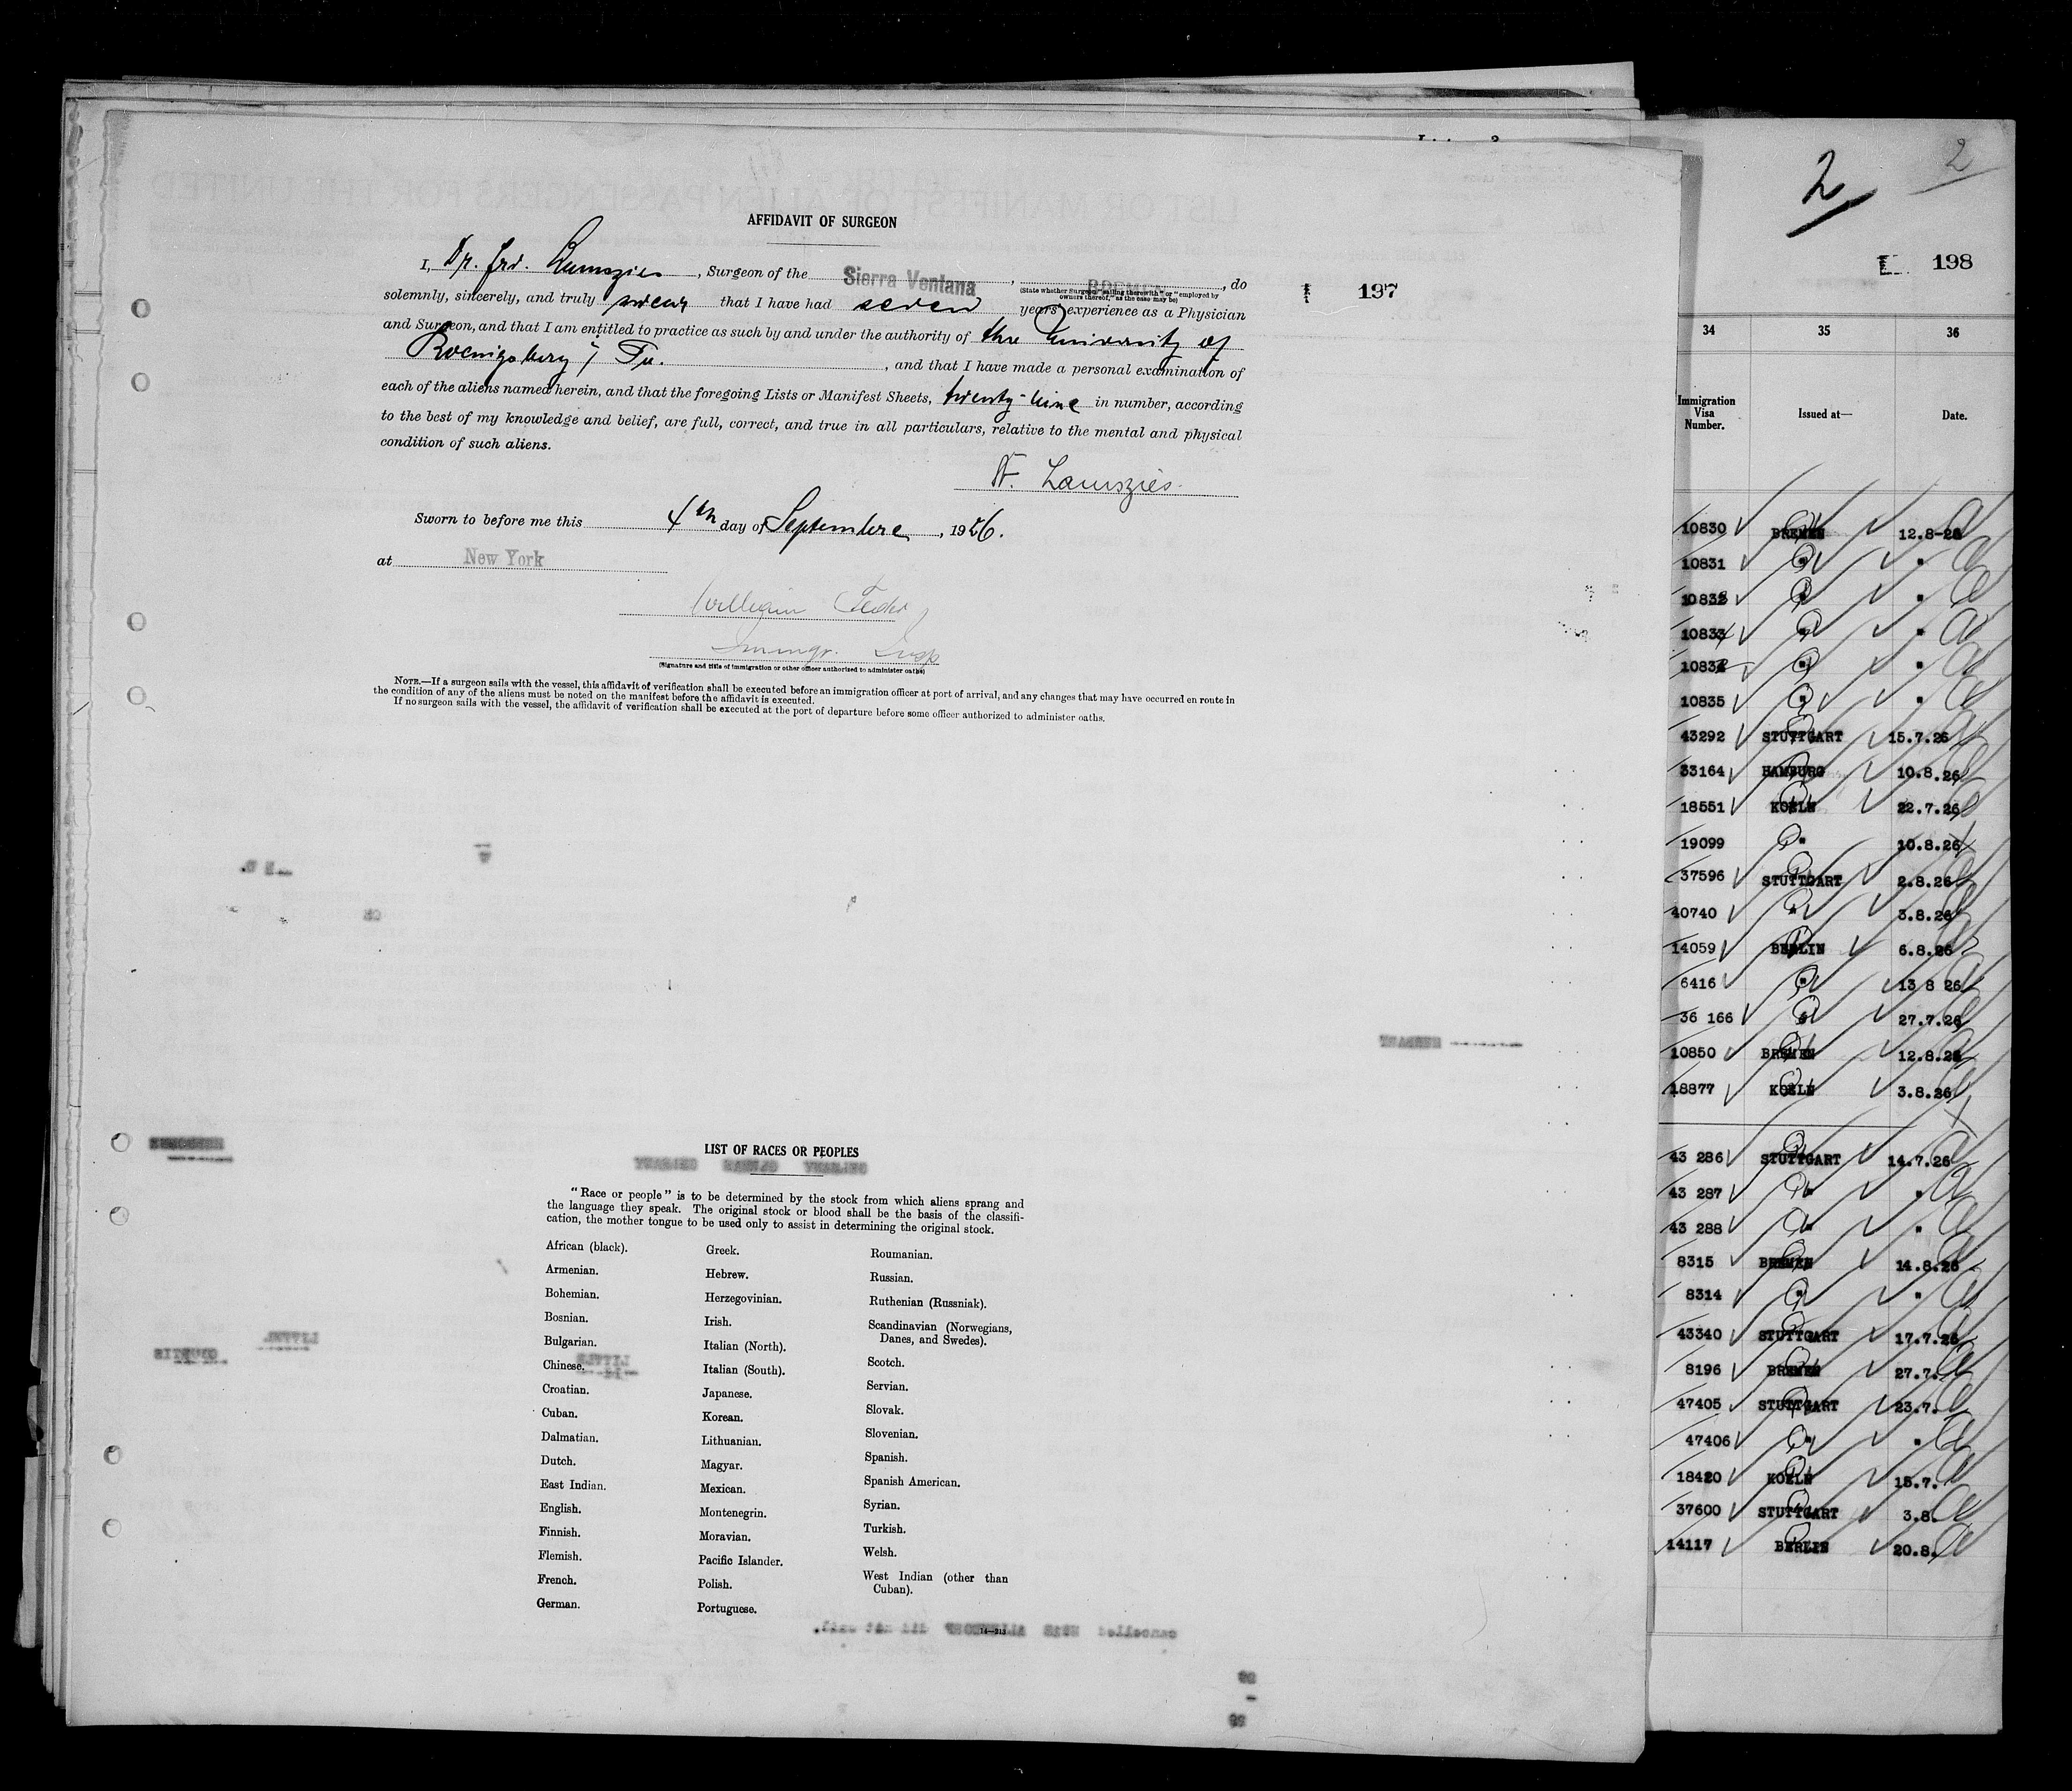 AFFIDAVIT OF SURGEON
I, Dr. , Surgeon of the Sierra Ventana, BREMEN, do
(State whether Surgeon "sailing therewith" or "employed by owners thereof," as the case may be)
solemnly, sincerely, and truly swear that I have had seven years' experience as a Physician
and Surgeon, and that I am entitled to practice as such by and under the authority of the University of
, and that I have made a personal examination of
each of the aliens named herein, and that the foregoing Lists or Manifest Sheets, twenty-nine in number, according
to the best of my knowledge and belief, are full, correct, and true in all particulars, relative to the mental and physical
condition of such aliens.
Sworn to before me this 4th day of Septembre, 1926.
at New York
William
Immgr. Insp
(Signature and title of immigration or other officer authorized to administer oaths)
NOTE.—If a surgeon sails with the vessel, this affidavit of verification shall be executed before an immigration officer at port of arrival, and any changes that may have occurred en route in
the condition of any of the aliens must be noted on the manifest before the affidavit is executed.
If no surgeon sails with the vessel, the affidavit of verification shall be executed at the port of departure before some officer authorized to administer oaths.
197
LIST OF RACES OR PEOPLES
"Race or people" is to be determined by the stock from which aliens sprang and
the language they speak. The original stock or blood shall be the basis of the classifi-
cation, the mother tongue to be used only to assist in determining the original stock.
African (black).
Armenian.
Bohemian.
Bosnian.
Bulgarian.
Chinese.
Croatian.
Cuban.
Dalmatian.
Dutch.
East Indian.
English.
Finnish.
Flemish.
French.
German.
Greek.
Hebrew.
Herzegovinian.
Irish.
Italian (North).
Italian (South).
Japanese.
Korean.
Lithuanian.
Magyar.
Mexican.
Montenegrin.
Moravian.
Pacific Islander.
Polish.
Portuguese.
Roumanian.
Russian.
Ruthenian (Russniak).
Scandinavian (Norwegians,
Danes, and Swedes).
Scotch.
Servian.
Slovak.
Slovenian.
Spanish.
Spanish American.
Syrian.
Turkish.
Welsh.
West Indian (other than
Cuban).
14—313
2
2
198
34 35 36
Immigration Visa Number. Issued at— Date.
10830 BREMEN 12.8-26
10831 "
10832 "
10833 "
10834 "
10835 "
43292 STUTTGART 15.7.26
33164 HAMBURG 10.8.26
18551 KOELN 22.7.26
19099 " 10.8.26
37596 STUTTGART 2.8.26
40740 " 3.8.26
14059 BERLIN 6.8.26
6416 " 13 8 26
36 166 27.7.26
10850 BREMEN 12.8.26
18877 KOELN 3.8.26
43 286 STUTTGART 14.7.26
43 287 " "
43 288 " "
8315 BREMEN 14.8.26
8314 " "
43340 STUTTGART 17.7.26
8196 BREMEN 27.7.
47405 STUTTGART 23.7.
47406 " "
18420 KOELN 15.7.
37600 STUTTGART 3.8.
14117 BERLIN 20.8.